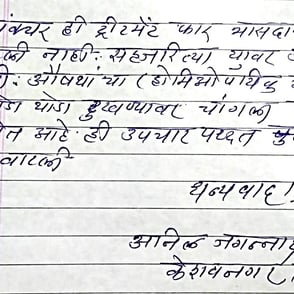 क्चर ही ट्रीटमेंट फार त्रासदा
ली नाही. सहजरित्या यावर
औषधा चा (होमिओपॅथिक
थोडा दुखण्यावर चांगला
त आहे. ही उपचार पध्दत
वाटली
धन्यवाद!
अनिल जगन्ना
केशवनगर